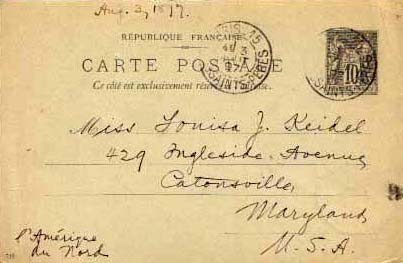 Aug. 3, 1897.
RÉPUBLIQUE FRANÇAISE
CARTE POSTALE
Ce côté est exclusivement réservé à l'adresse.
PARIS 15
3
97
SAINTS-PÈRES
10
Miss Louisa J. Keidel
429 Ingleside Avenue
Catonsville,
Maryland
U.S.A.
l'Amérique
du Nord